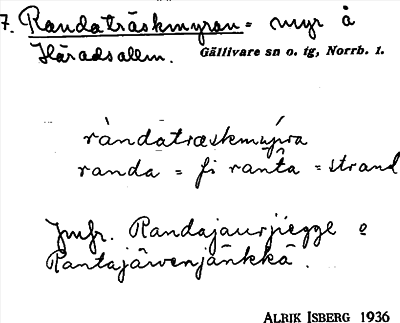 7. Randaträskmyran = myr å
Häradsallm. Gällivare sn o. tg, Norrb. l.
ràndatræskmy̌ra
randa = fi ranta = strand
Jmfr. Randajaurjiegge o
Rantajärvenjänkkä.
ALRIK ISBERG 1936